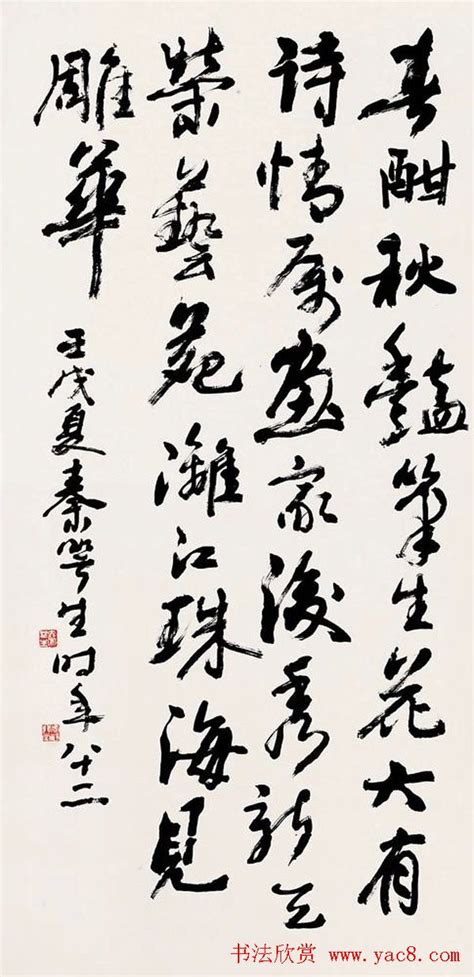 春酣秋豔筆生花大有
詩情属畫家後秀
榮藝苑灕江珠海見
雕華
壬戌夏秦咢生时年八十二
书法欣赏 www.yac8.com